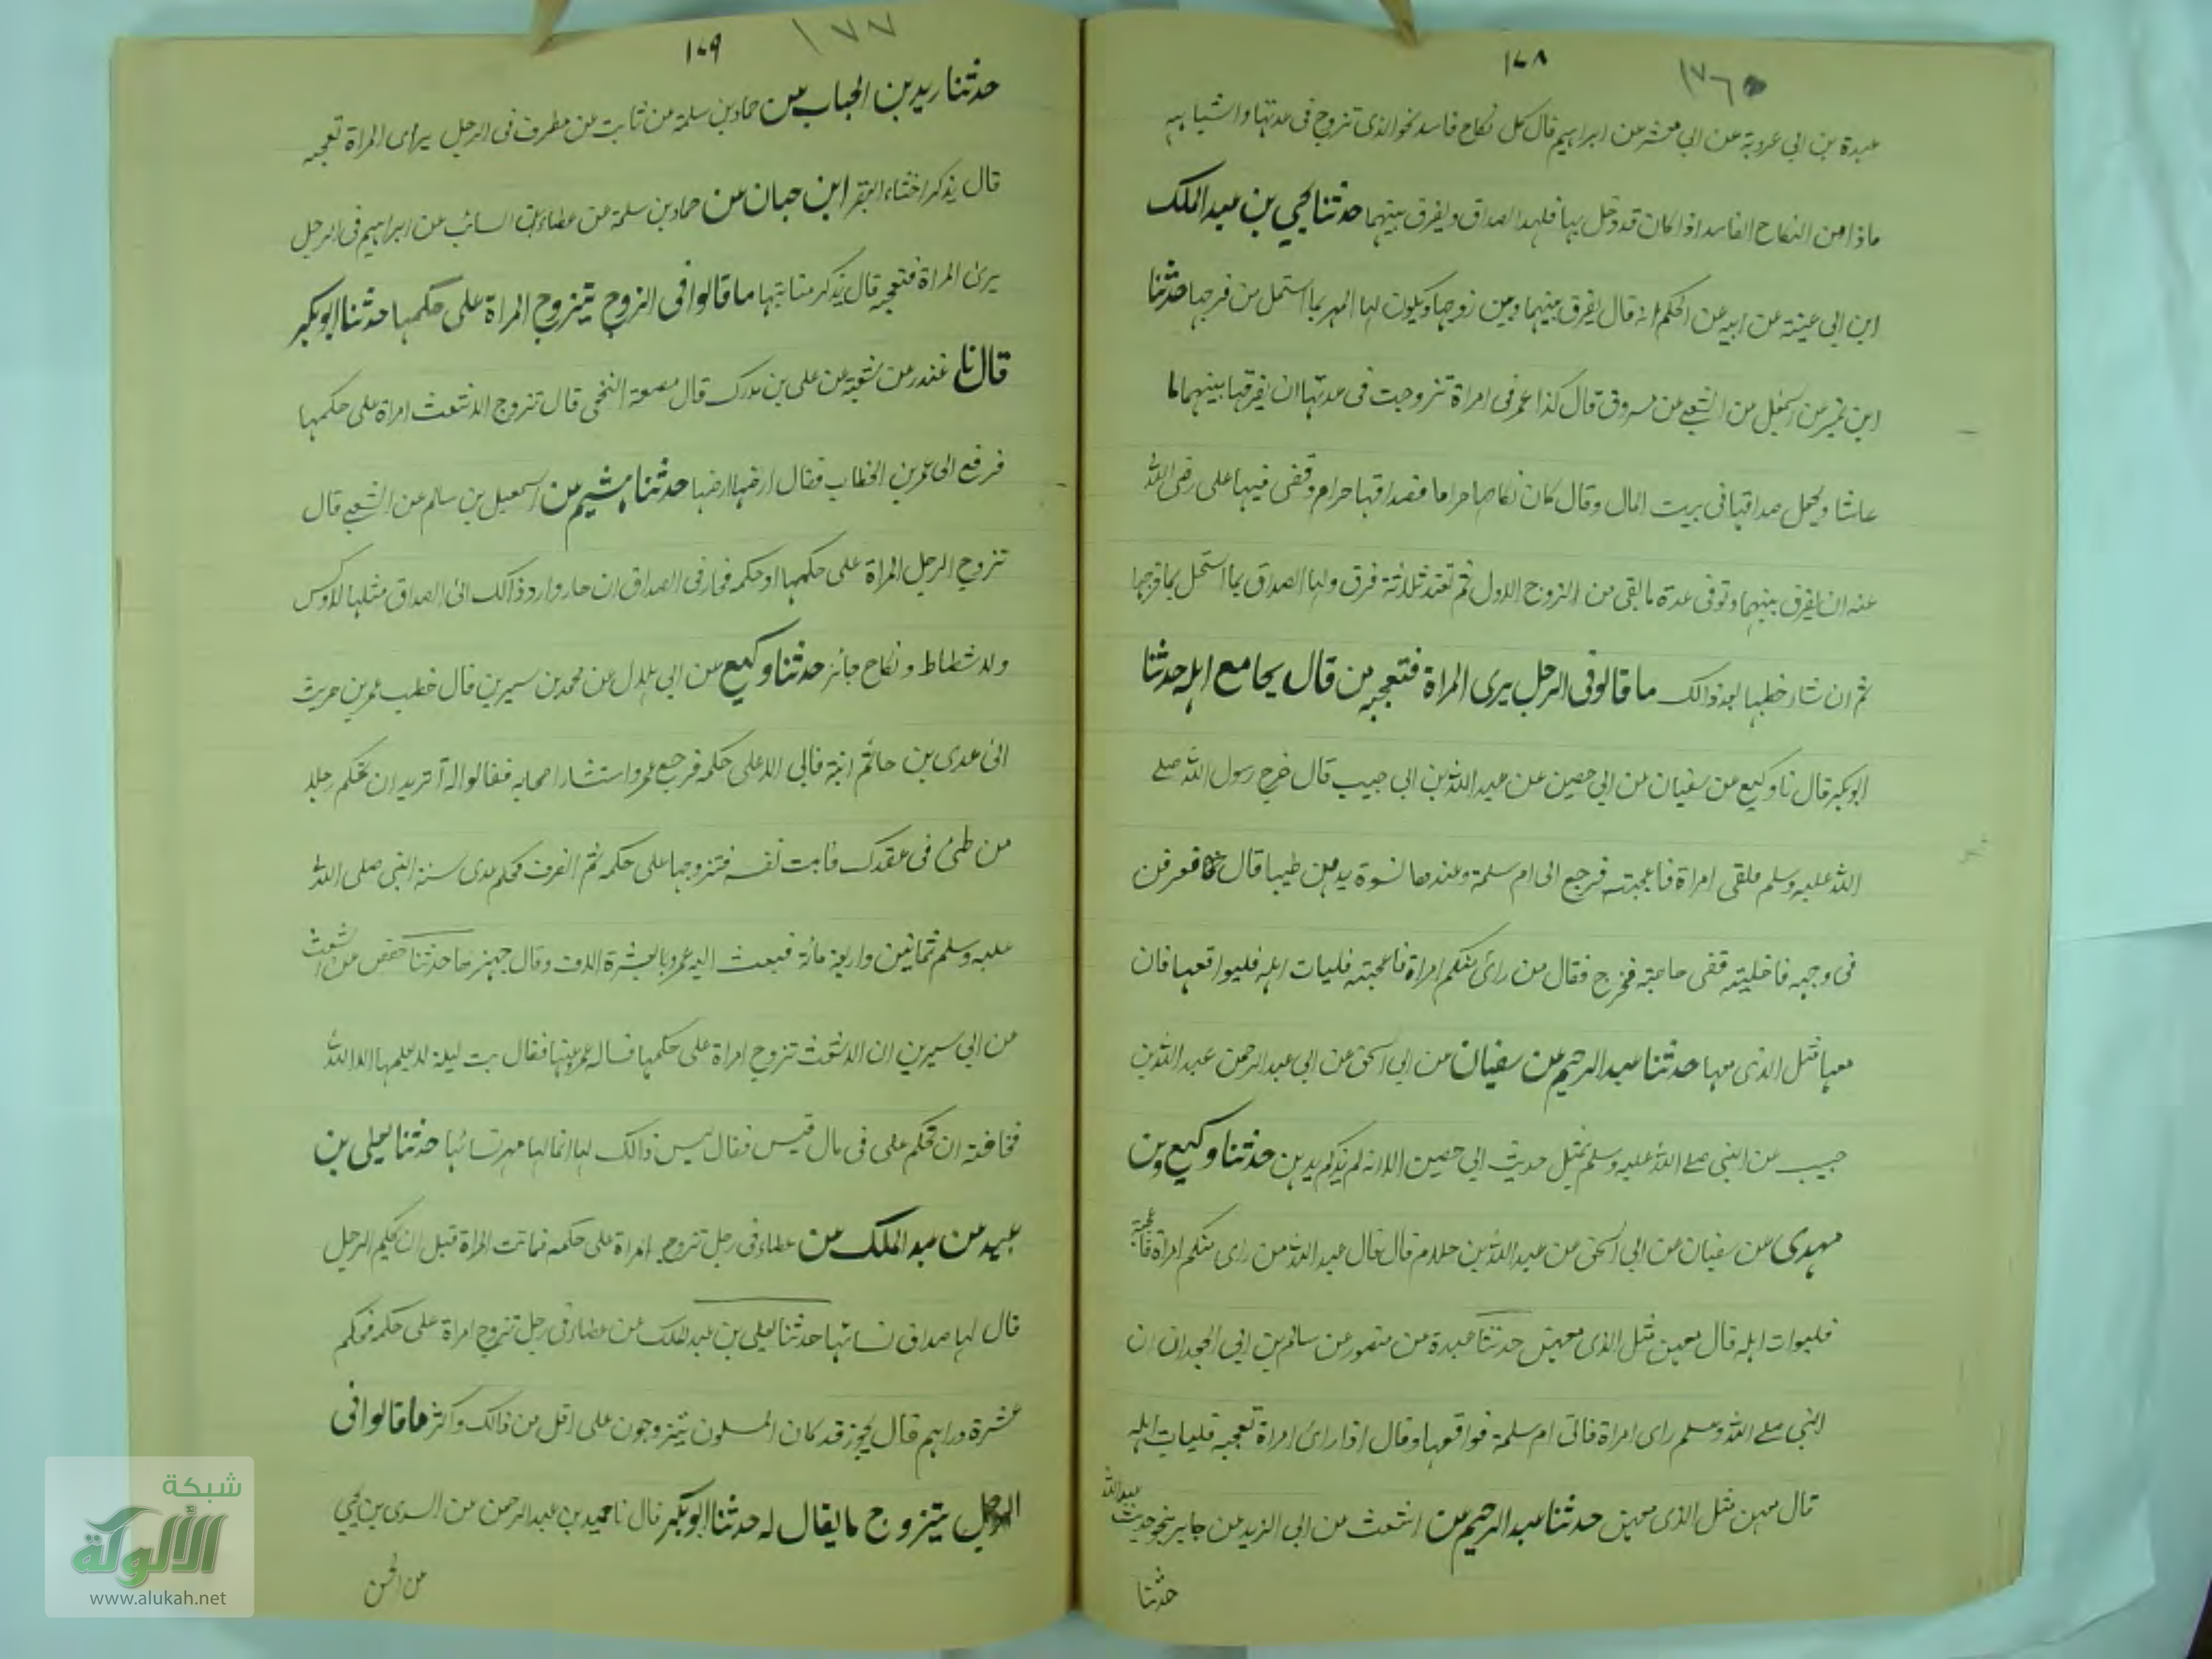 ١٧٨
١٧٦
عبدة بن ابي عروبة عن ابي معشر عن ابراهيم قال كل نكاح فاسد نحو الذى تزوج فى عدتها واشباهه
ماذا من النكاح الفاسد اذا كان قد دخل بها فلها الصداق ويفرق بينهما حدثنا يحيي بن عبد الملك
ابن ابي عينة عن ابيه عن الحكم انه قال يفرق بينهما وبين زوجها ويكون لها المهر بما استحل من فرجها حدثنا
ابن نمير عن اسمعيل عن الشعبي عن مسروق قال كذا عمر فى امراة تزوجت فى عدتها ان يفرقها بينهما ما
عاشا ويجعل صداقها فى بيت المال وقال كان نكاحها حراما فصداقها حرام وقضى فيها على رضى الله
عنه ان يفرق بينهما وتوفى عدة ما بقى من الزوج الاول ثم تعتد ثلاثة فرق ولها الصداق بما استحل بما فرجها
ثم ان شاء خطبها بعد ذالك ما قالوفى الرجل يرى المراة فتعجبه من قال يجامع اهله حدثنا
ابوبكر قال نا وكيع عن سفيان عن ابي حصين عن عبد الله بن ابي حبيب قال خرج رسول الله صلے
الله عليه وسلم فلقى امراة فاعجبته فرجع الى ام سلمة وعندها نسوة يدهن طيبا قال فعرفن
فى وجهه فاخلينه فقضى حاجته فخرج فقال من رائ منكم امراة فاعجبته فليات اهله فليواقعها فان
معها مثل الذى معها حدثنا عبد الرحيم عن سفيان عن ابي اسحق عن ابي عبد الرحمن عبد الله بن
حبيب عن النبى صلے الله عليه وسلم بمثل حديث ابي حصين الا انه لم يذكر يدهن حدثنا وكيع وبن
مهدى عن سفيان عن ابي اسحق عن عبد الله بن حلام قال قال عبد الله من راى منكم امراة فاعجبته
فليوات اهله قال معهن مثل الذى معهن حدثنا عبدة عن منصور عن سالم بن ابي الجعد ان
النبى صلے الله وسلم راى امراة فاتى ام سلمة فواقعها وقال اذا رائ امراة تعجبه فليات اهله
قال معهن مثل الذى معهن حدثنا عبد الرحيم عن اشعث عن ابي الزبير عن جابر بنحو حديث عبد الله
حدثنا
١٧٩
١٧٧
حدثنا زيد بن الحباب عن حماد بن سلمة عن ثابت عن مطرف فى الرجل يراى المراة تعجبه
قال يذكر اخثاء البقر ابن حبان عن حماد بن سلمة عن عطاء بن السائب عن ابراهيم فى الرجل
يرى المراة فتعجبه قال يذكر مناتنها ما قالوا فى الزوج يتزوج المراة على حكمها حدثنا ابوبكر
قال نا غندر عن شعبة عن على بن مدرك قال النخعى قال تزوج الاشعث امراة على حكمها
فرفع الى عمر بن الخطاب فقال ارضها ارضها حدثنا هشيم عن اسمعيل بن سالم عن الشعبے قال
تزوج الرجل المراة على حكمها او حكمه فجار فى الصداق ان جار وا رد ذالك الى الصداق مثلها لا وكس
ولا شطاط ونكاح جائز حدثنا وكيع عن ابي هلال عن محمد بن سيرين قال خطب عمر بن حريث
الى عدى بن حاتم ابنة فابى الا على حكمه فرجع عمر واستشار اصحابه فقالوا له أتريد ان تحكم رجلا
من طئ فى عقدك فابت نفسه فتزوجها على حكمه ثم انصرف فحكم عدى سنة النبى صلى الله
عليه وسلم ثمانين واربع مائة فبعث اليه عمرو بالعشرة الاف وقال جهزها حدثنا حفص عن اشعث
عن ابي سيرين ان الاشعث تزوج امراة على حكمها فساله عمر عنها فقال بت ليلة لا يعلمها الا الله
مخافة ان تحكم على فى مال قيس فقال ليس ذالك لها انما لها مهر نسائها حدثنا يعلى بن
عبيد عن عبد الملك عن عطاء فى رجل تزوج امراة على حكمه فماتت المراة قبل ان يحكم الرجل
قال لها صداق نسائها حدثنا يعلى بن عبد الملك عن عطاء فى رجل تزوج امراة على حكمه فحكم
عشرة دراهم قال يجوز قد كان المسلمون يتزوجون على اقل من ذالك واكثر ما قالوا فى
الرجل يتزوج ما يقال له حدثنا ابوبكر قال نا حميد بن عبد الرحمن عن السرى بن يحيي
عن الحسن
شبكة
الألوكة
www.alukah.net